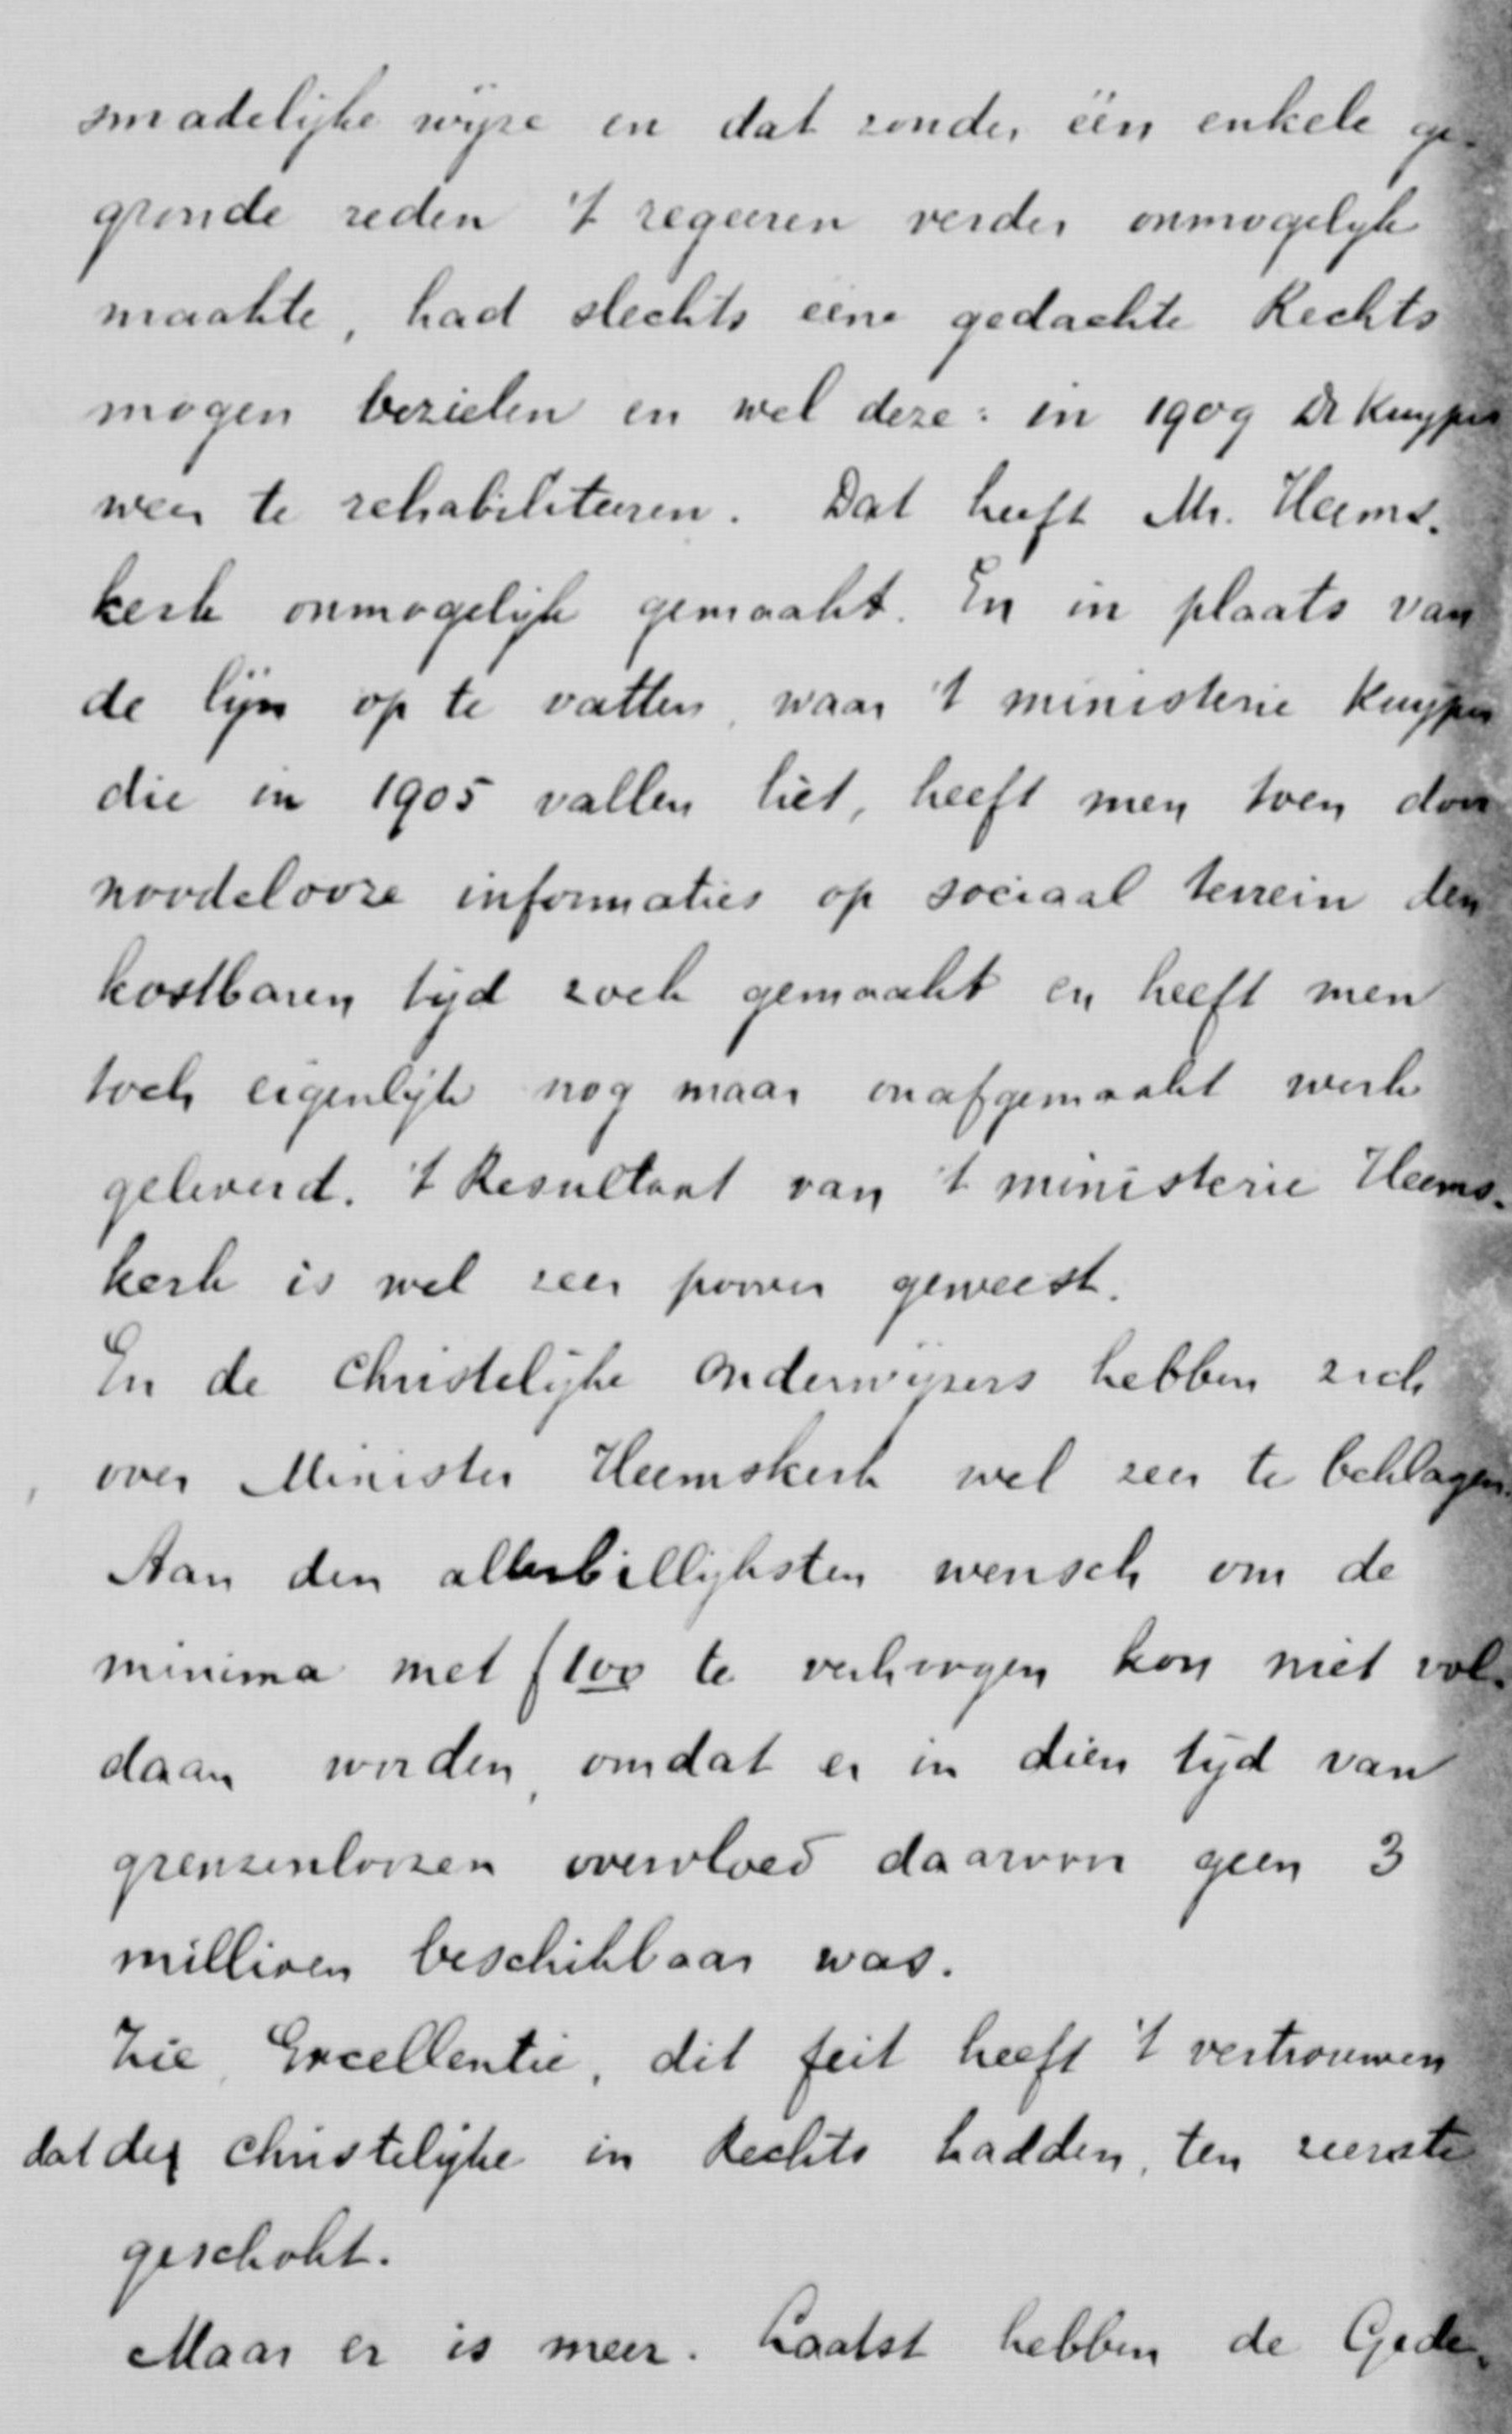 smadelijke wijze en dat zonder één enkele ge-
gronde reden 't regeeren verder onmogelijk
maakte, had slechts eene gedachte Rechts
mogen bezielen en wel deze: in 1909 Dr Kuyper
weer te rehabiliteeren. Dat heeft Mr. Heems-
kerk onmogelijk gemaakt. En in plaats van
de lijn op te vatten, waar 't ministerie Kuyper
die in 1905 vallen liet, heeft men toen door
noodelooze informaties op sociaal terrein den
kostbaren tijd zoek gemaakt en heeft men
toch eigenlijk nog maar onafgemaakt werk
geleverd. 't Resultaat van 't ministerie Heems-
kerk is wel zeer pover geweest.
En de Christelijke onderwijzers hebben zich
over Minister Heemskerk wel zeer te beklagen.
Aan den allerbillijksten wensch om de
minima met f 100 te verhoogen kon niet vol-
daan worden, omdat er in dien tijd van
grenzenloozen overvloed daarvoor geen 3
millioen beschikbaar was.
Zie, Excellentie, dit feit heeft 't vertrouwen
dat de christelijke in Rechts hadden, ten zeerste
geschokt.
Maar er is meer. Laatst hebben de Gede-